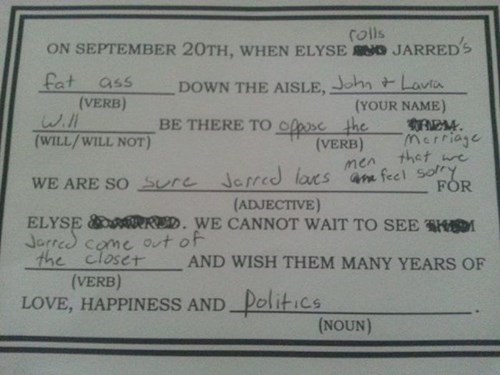 rolls
ON SEPTEMBER 20TH, WHEN ELYSE JARRED's
fat ass DOWN THE AISLE, John + Laura
(VERB) (YOUR NAME)
Will BE THERE TO oppose the Marriage
(WILL/WILL NOT) (VERB)
men that we
WE ARE SO sure Jarred loves feel sorry FOR
(ADJECTIVE)
ELYSE. WE CANNOT WAIT TO SEE
Jarred come out of
the closet AND WISH THEM MANY YEARS OF
(VERB)
LOVE, HAPPINESS AND Politics.
(NOUN)